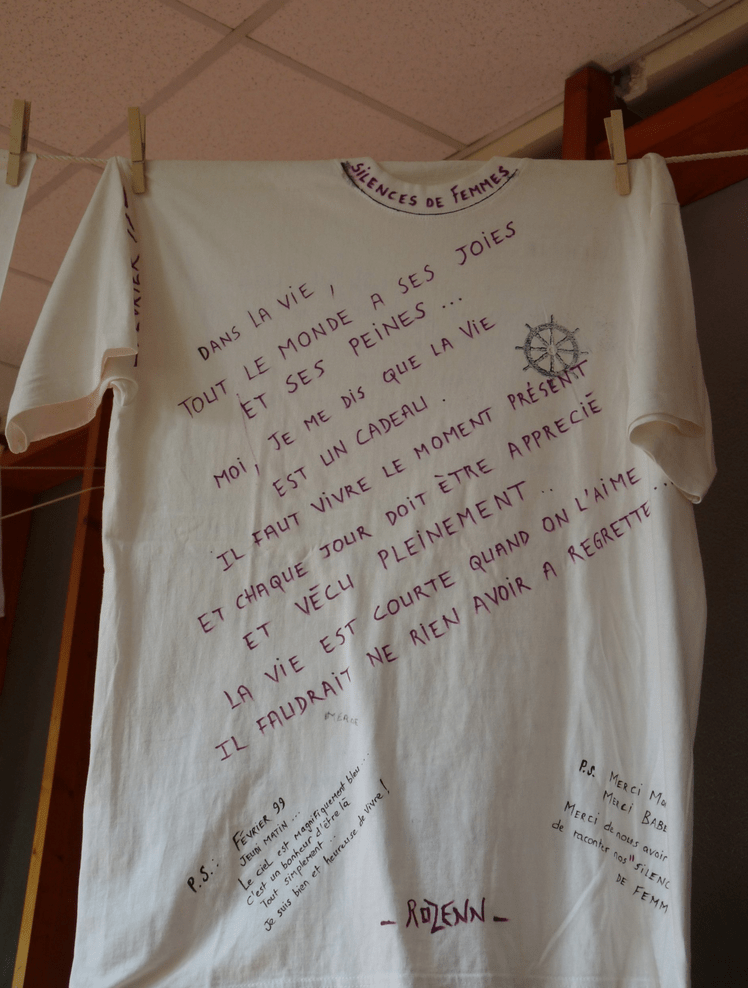 SILENCES DE FEMMES
DANS LA VIE,
TOUT LE MONDE A SES JOIES
ET SES PEINES...
MOI, JE ME DIS QUE LA VIE
EST UN CADEAU.
IL FAUT VIVRE LE MOMENT PRÉSENT
ET CHAQUE JOUR DOIT ÊTRE APPRECIÉ
ET VÉCU PLEINEMENT..
LA VIE EST COURTE QUAND ON L'AIME...
IL FAUDRAIT NE RIEN AVOIR A REGRETTE
P.S.: FÉVRIER 99
JEUDI MATIN...
Le ciel est magnifiquement bleu...
C'est un bonheur d'être là
Tout simplement...
Je suis bien et heureuse de vivre!
P.S. MERCI MA
MERCI BABE
Merci de nous avoir
de raconter nos "SILENC
DE FEMM
- ROZENN -